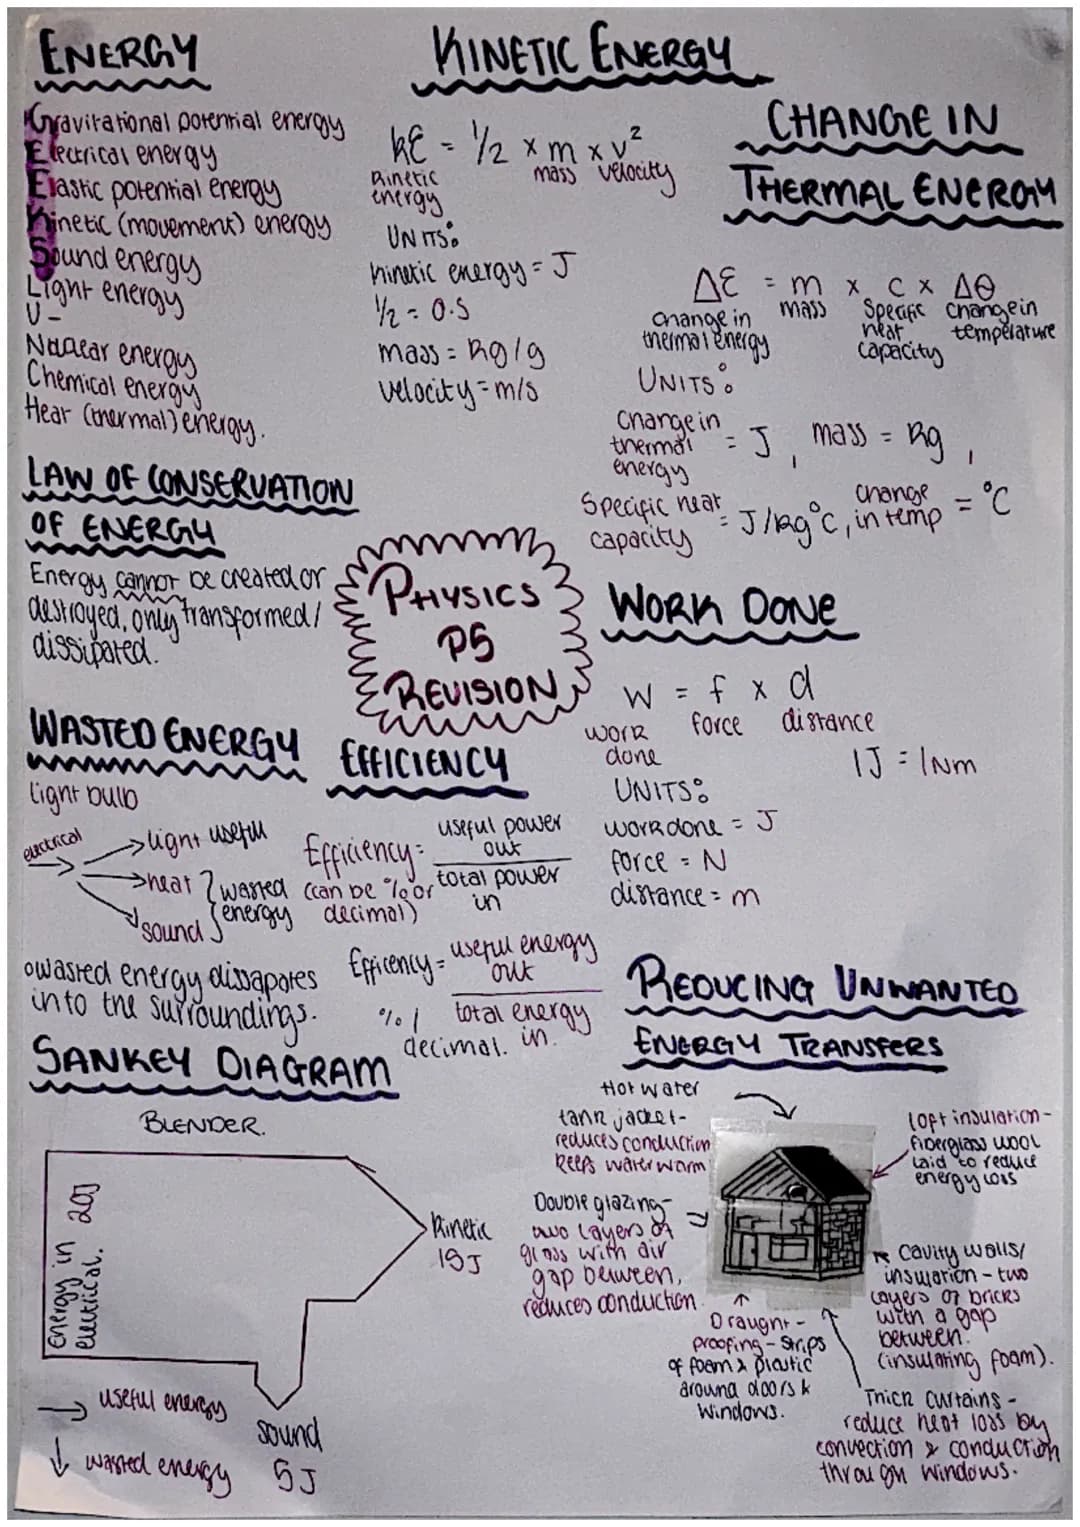 ENERGY
Gravitational potential energy
Electrical energy
Elastic potential energy
Kinetic (movement) energy
Sound energy
Light energy
U -
Nuclear energy
Chemical energy
Heat (thermal) energy.
LAW OF CONSERVATION
OF ENERGY
Energy cannot be created or
destroyed, only transformed/
dissipated.
KINETIC ENERGY
KE = 1/2 × m × v²
Kinetic energy
mass velocity
UNITS:
kinetic energy = J
1/2 = 0.5
mass = kg/g
velocity = m/s
CHANGE IN
THERMAL ENERGY
ΔE = m × c × Δθ
change in thermal energy
mass
specific heat capacity
change in temperature
UNITS:
change in thermal energy = J, mass = kg,
specific heat capacity = J/kg°C, change in temp = °C
PHYSICS
P5
REVISION
WORK DONE
W = f × d
work done
force distance
1J = 1Nm
UNITS:
work done = J
force = N
distance = m
WASTED ENERGY
light bulb
electrical
light useful
heat
sound
wasted energy
wasted energy dissapates
into the surroundings.
EFFICIENCY
Efficiency = useful power out
total power in
(can be % or decimal)
Efficency = useful energy out
total energy in.
% / decimal.
SANKEY DIAGRAM
BLENDER.
Energy in 20J
electrical.
kinetic
15J
sound
5J
→ useful energy
↓ wasted energy
REDUCING UNWANTED
ENERGY TRANSFERS
Hot water
tank jacket -
reduces conduction
keeps water warm
loft insulation -
fiberglass wool
laid to reduce
energy loss
Double glazing -
two layers of
glass with air
gap between,
reduces conduction.
Cavity walls/
insulation - two
layers of bricks
with a gap
between.
(insulating foam).
Draught -
proofing - strips
of foam & plastic
around doors &
windows.
Thick curtains -
reduce heat loss by
convection & conduction
through windows.